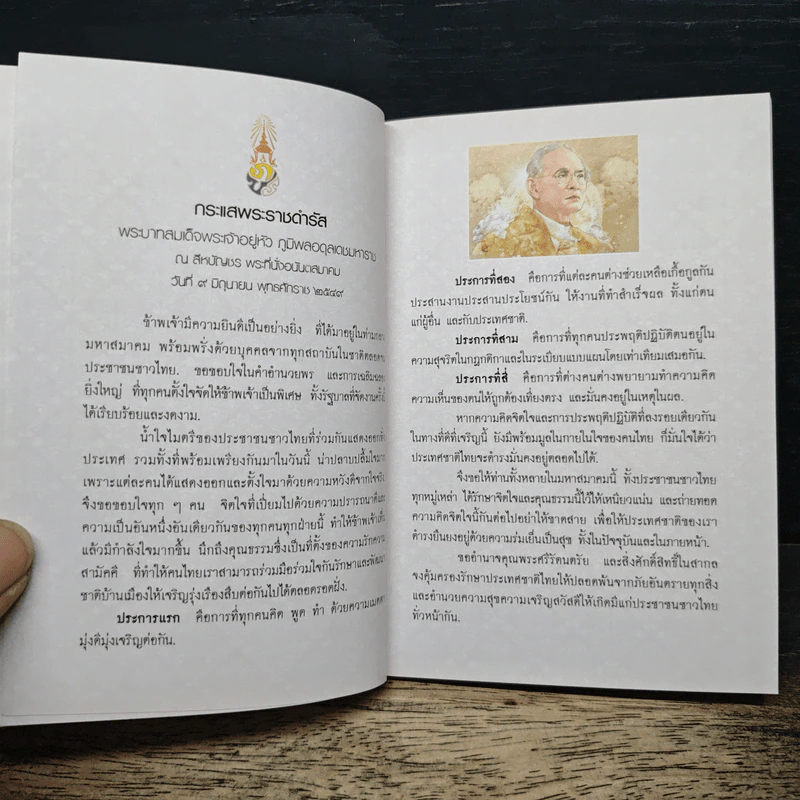 กระแสพระราชดำรัส
พระบาทสมเด็จพระเจ้าอยู่หัว ภูมิพลอดุลเดชมหาราช
ณ สีหบัญชร พระที่นั่งอนันตสมาคม
วันที่ ๙ มิถุนายน พุทธศักราช ๒๕๔๙
ข้าพเจ้ามีความยินดีเป็นอย่างยิ่ง ที่ได้มาอยู่ในท่ามกลาง
มหาสมาคม พร้อมพรั่งด้วยบุคคลจากทุกสถาบันในชาติตลอดจน
ประชาชนชาวไทย. ขอขอบใจในคำอำนวยพร และการเฉลิมฉลอง
ยิ่งใหญ่ ที่ทุกคนตั้งใจจัดให้ข้าพเจ้าเป็นพิเศษ ทั้งรัฐบาลที่จัดงานครั้งนี้
ได้เรียบร้อยและงดงาม.
น้ำใจไมตรีของประชาชนชาวไทยที่ร่วมกันแสดงออกทั่ว
ประเทศ รวมทั้งที่พร้อมเพรียงกันมาในวันนี้ น่าปลาบปลื้มใจมาก
เพราะแต่ละคนได้แสดงออกและตั้งใจมาด้วยความหวังดีจากใจจริง
จึงขอขอบใจทุก ๆ คน จิตใจที่เปี่ยมไปด้วยความปรารถนาดีและ
ความเป็นอันหนึ่งอันเดียวกันของทุกคนทุกฝ่ายนี้ ทำให้ข้าพเจ้าเห็น
แล้วมีกำลังใจมากขึ้น นึกถึงคุณธรรมซึ่งเป็นที่ตั้งของความรักความ
สามัคคี ที่ทำให้คนไทยเราสามารถร่วมมือร่วมใจกันรักษาและพัฒนา
ชาติบ้านเมืองให้เจริญรุ่งเรืองสืบต่อกันไปได้ตลอดรอดฝั่ง.
ประการแรก คือการที่ทุกคนคิด พูด ทำ ด้วยความเมตตา
มุ่งดีมุ่งเจริญต่อกัน.
ประการที่สอง คือการที่แต่ละคนต่างช่วยเหลือเกื้อกูลกัน
ประสานงานประสานประโยชน์กัน ให้งานที่ทำสำเร็จผล ทั้งแก่ตน
แก่ผู้อื่น และกับประเทศชาติ.
ประการที่สาม คือการที่ทุกคนประพฤติปฏิบัติตนอยู่ใน
ความสุจริตในกฎกติกาและในระเบียบแบบแผนโดยเท่าเทียมเสมอกัน.
ประการที่สี่ คือการที่ต่างคนต่างพยายามทำความคิด
ความเห็นของตนให้ถูกต้องเที่ยงตรง และมั่นคงอยู่ในเหตุในผล.
หากความคิดจิตใจและการประพฤติปฏิบัติที่ลงรอยเดียวกัน
ในทางที่ดีที่เจริญนี้ ยังมีพร้อมมูลในกายในใจของคนไทย ก็มั่นใจได้ว่า
ประเทศชาติไทยจะดำรงมั่นคงอยู่ตลอดไปได้.
จึงขอให้ท่านทั้งหลายในมหาสมาคมนี้ ทั้งประชาชนชาวไทย
ทุกหมู่เหล่า ได้รักษาจิตใจและคุณธรรมนี้ไว้ให้เหนียวแน่น และถ่ายทอด
ความคิดจิตใจนี้กันต่อไปอย่าให้ขาดสาย เพื่อให้ประเทศชาติของเรา
ดำรงยืนยงอยู่ด้วยความร่มเย็นเป็นสุข ทั้งในปัจจุบันและในภายหน้า.
ขออำนาจคุณพระศรีรัตนตรัย และสิ่งศักดิ์สิทธิ์ในสากล
จงคุ้มครองรักษาประเทศชาติไทยให้ปลอดพ้นจากภัยอันตรายทุกสิ่ง
และอำนวยความสุขความเจริญสวัสดีให้เกิดมีแก่ประชาชนชาวไทย
ทั่วหน้ากัน.